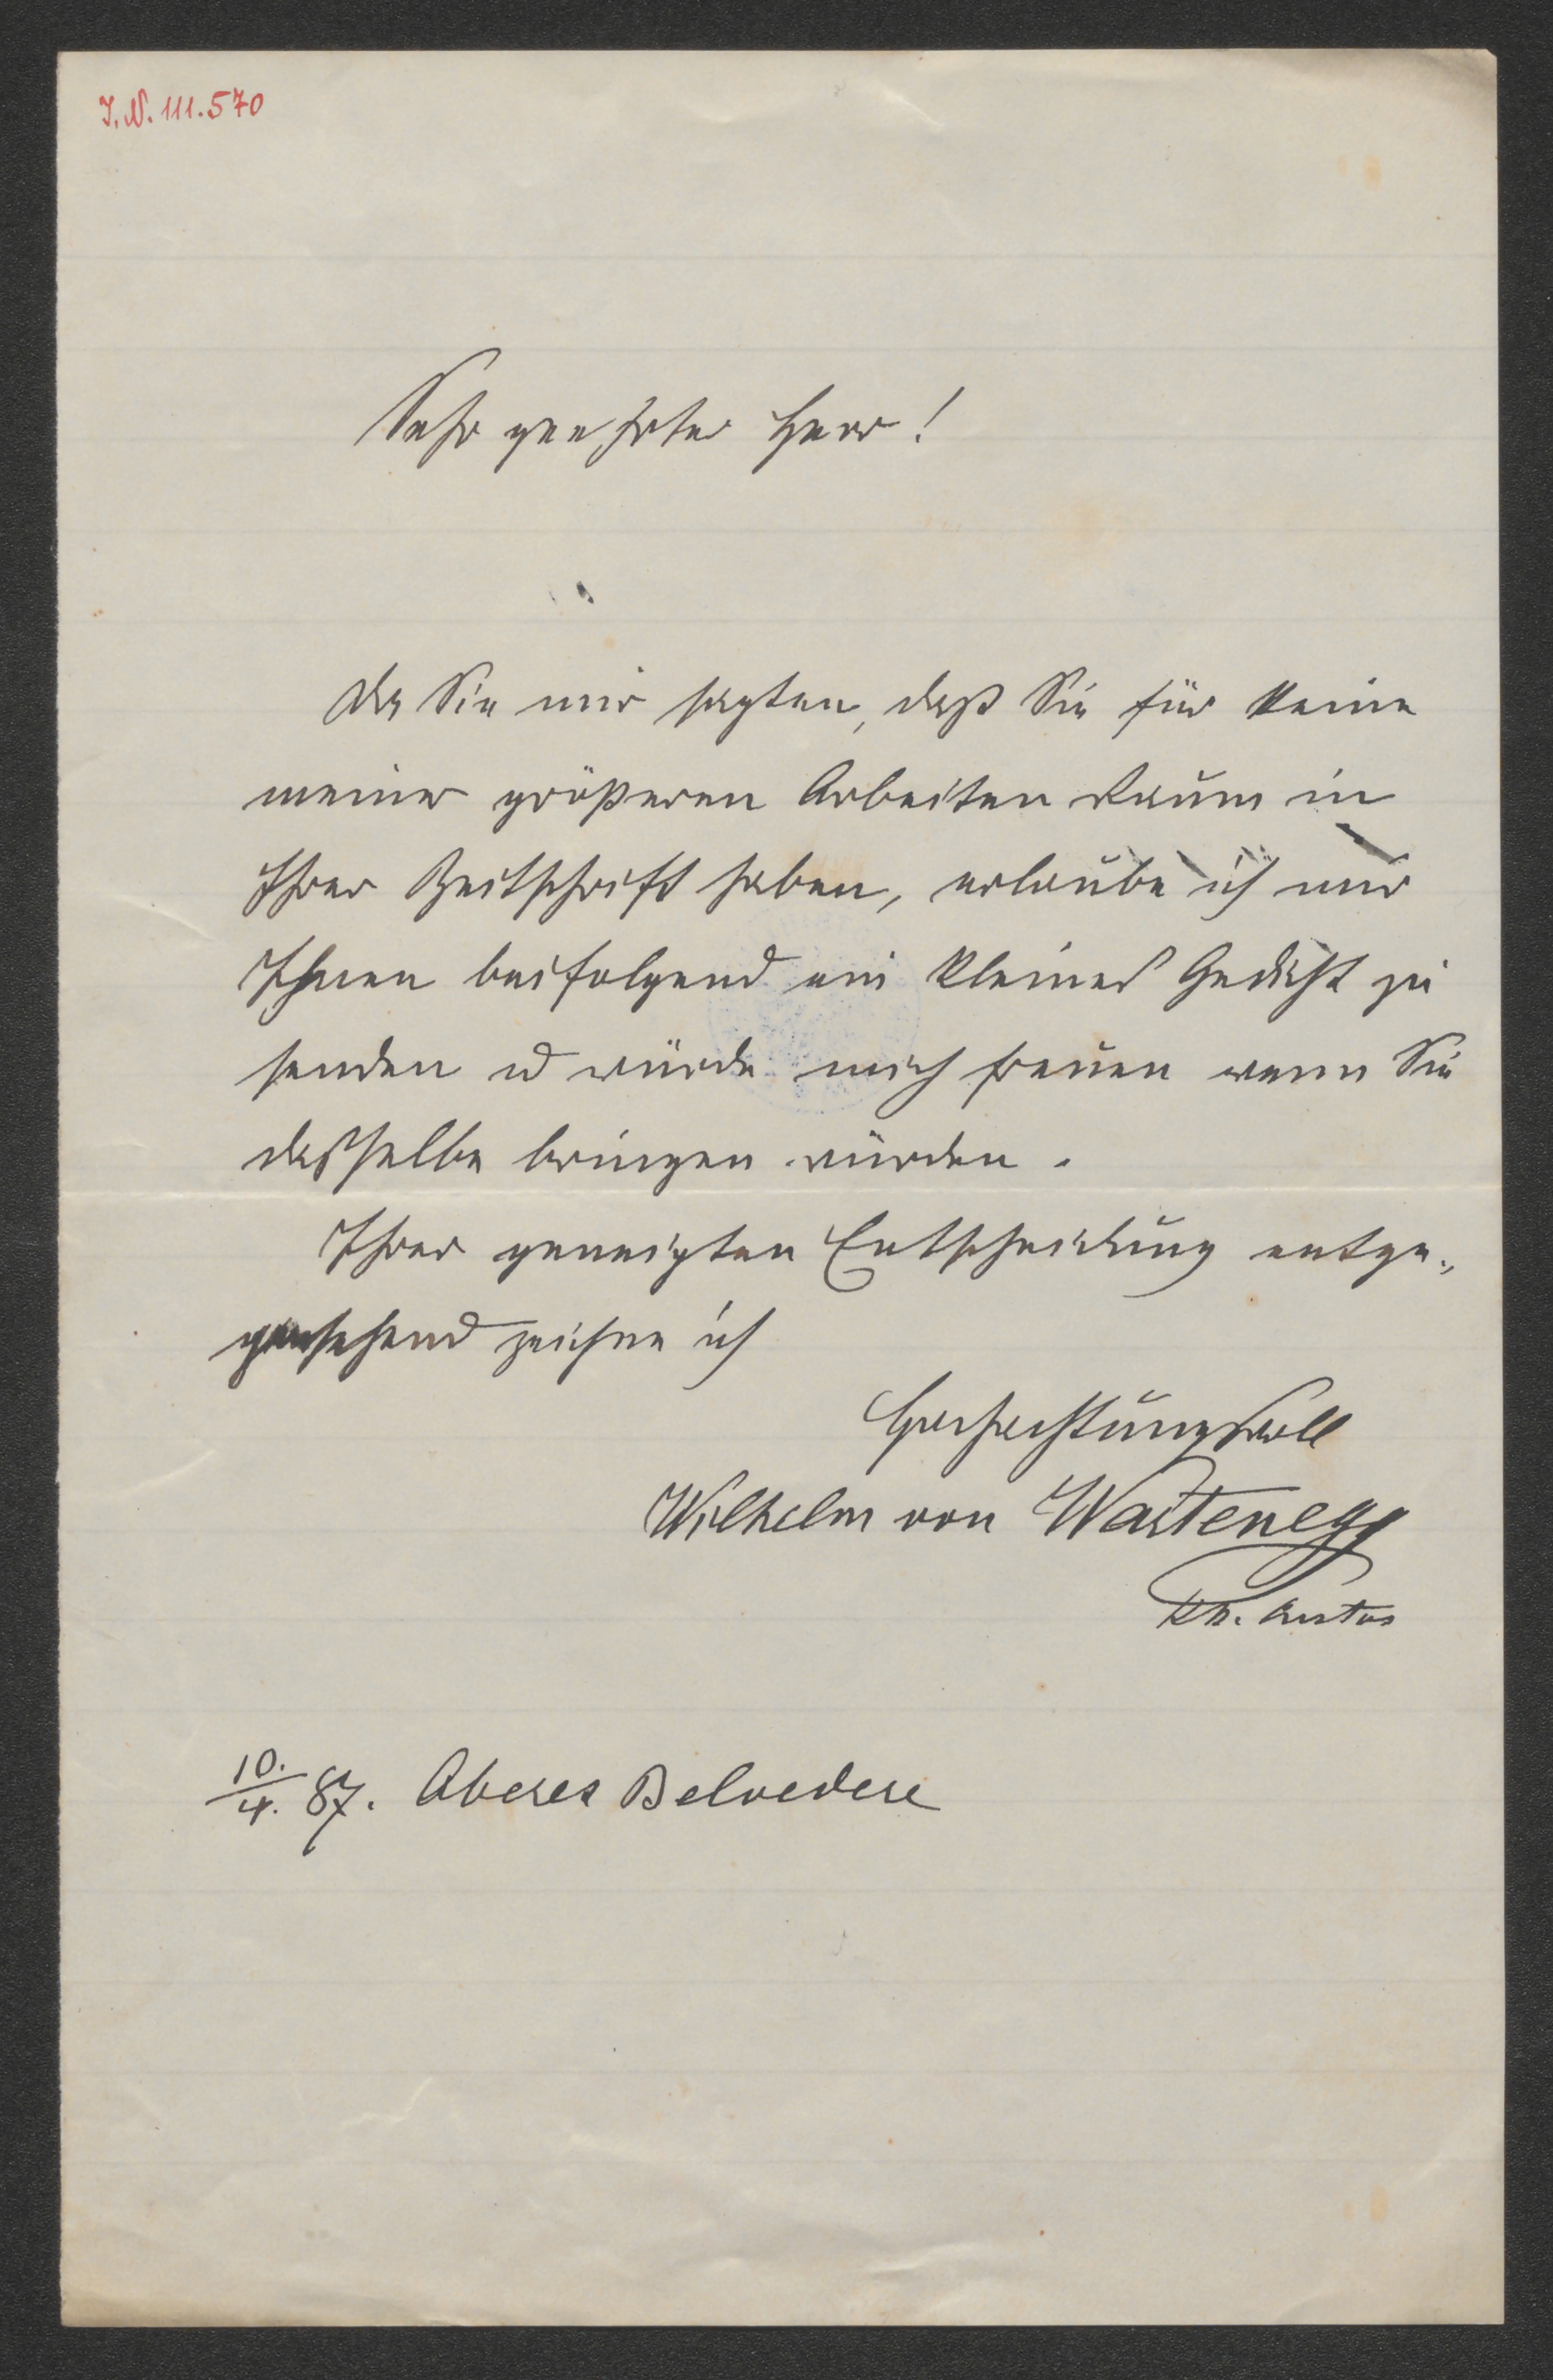 I. N. 111.570
Sehr geehrter Herr!
Da Sie mir sagten, daß Sie für keine
meiner größeren Arbeiten Raum in
Ihrer Zeitschrift haben, erlaube ich mir
Ihnen beifolgend ein kleines Gedicht zu
senden u würde mich freuen wenn Sie
dasselbe bringen würden.
Ihrer geneigten Entscheidung entge-
gensehend zeichne ich
Hochachtungsvoll
Wilhelm von Wartenegg
kk. Custos
10./4. 87. Oberes Belvedere